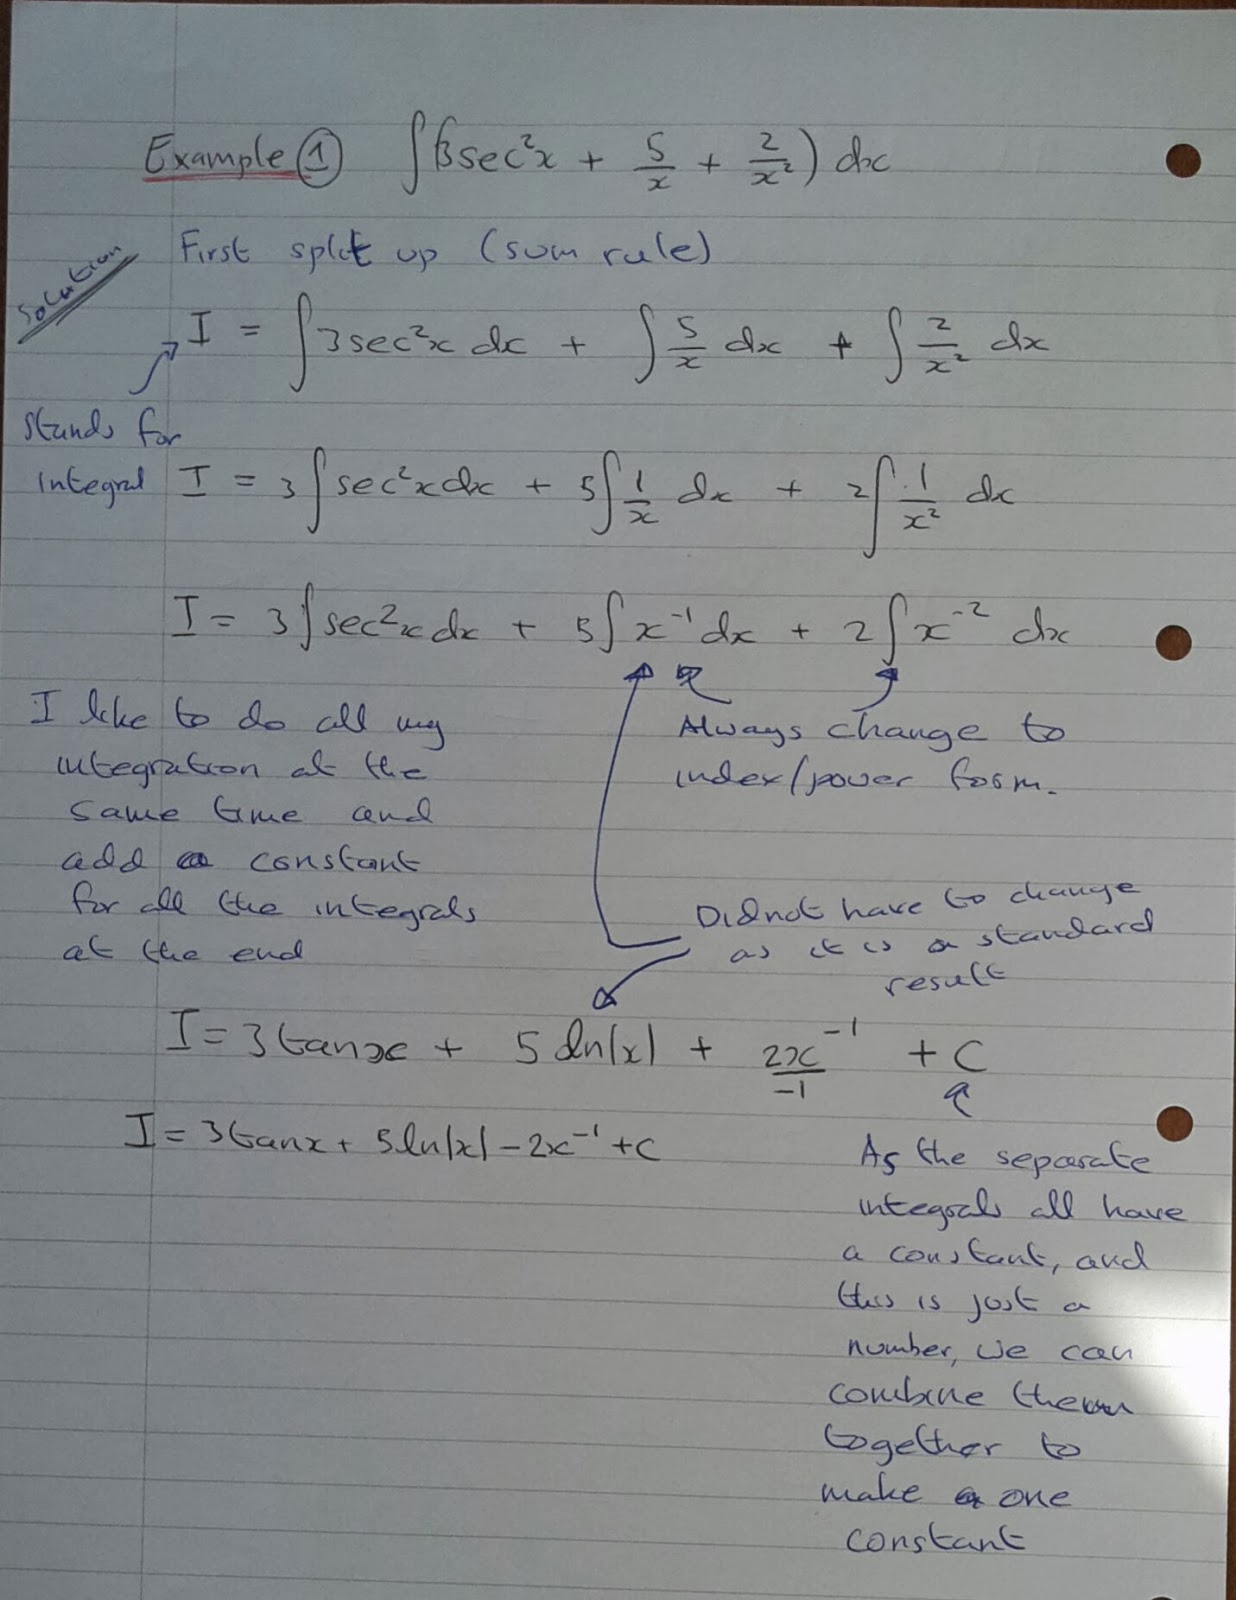 Example ① ∫(3sec²x + 5/x + 2/x²) dx
Solution
First split up (sum rule)
I = ∫3sec²x dx + ∫5/x dx + ∫2/x² dx
Stands for
integral
I = 3∫sec²x dx + 5∫1/x dx + 2∫1/x² dx
I = 3∫sec²x dx + 5∫x⁻¹ dx + 2∫x⁻² dx
I like to do all my
integration at the
same time and
add a constant
for all the integrals
at the end
Always change to
index/power form.
Did not have to change
as it is a standard
result
I = 3tanx + 5 ln|x| + 2x⁻¹/-1 + C
I = 3tanx + 5ln|x| - 2x⁻¹ + C
As the separate
integrals all have
a constant, and
this is just a
number, we can
combine them
together to
make one
constant